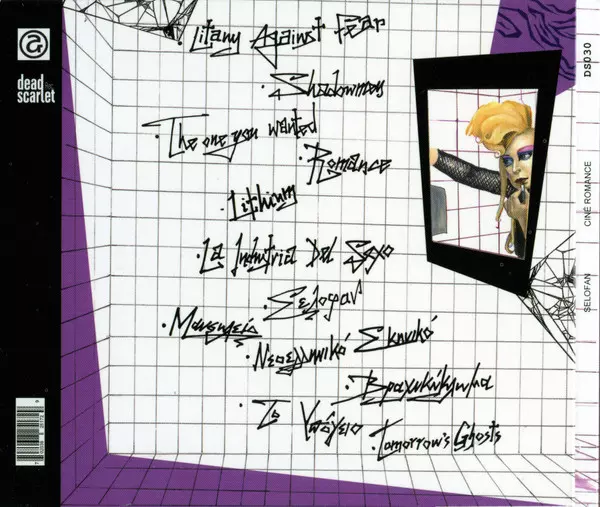 dead
scarlet
Litany Against Fear
Shadowmen
The one you wanted
Romance
Lithium
La Industria Del Sexo
Σελοφάν
Μαυσωλείο
Νεοελληνικό Σκηνικό
Βραχυκύκλωμα
Το Υπόγειο
Tomorrow's Ghosts
DS030
CINÉ ROMANCE
SELOFAN